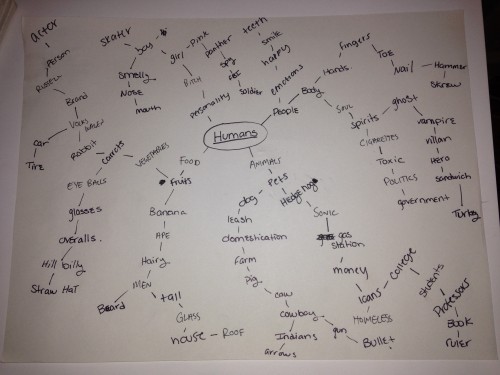 actor
Person
RUSSELL
Beard
Van
Tire
Rabbit
carrots
VEGETABLES
FOOD
EYE BALLS
glasses
overalls.
Hill billy
Straw HaT
skater
boy
girl
Pink
panther
spy
smelly
NOSE
mouth
BITCH
personality
teeth
smile
happy
emotions
soldier
PEOPLE
Humans
fingers
Toe
Nail
Hammer
Skrew
Hands.
Body
SOUL
spirits
ghost
vampire
villan
Hero
sandwich
Turkey
CIGARETTES
Toxic
POLITICS
government
fruits
Banana
APE
Hairy
MEN
Beard
tall
GLASS
house - ROOF
ANIMALS
Pets
dog
leash
domestication
farm
Pig
cow
cowboy
Indians
arrows
gun
Bullet
Hedgehog
SONIC
gas
station
money
loans
HOMELESS
college
students
Professors
BOOK
ruler